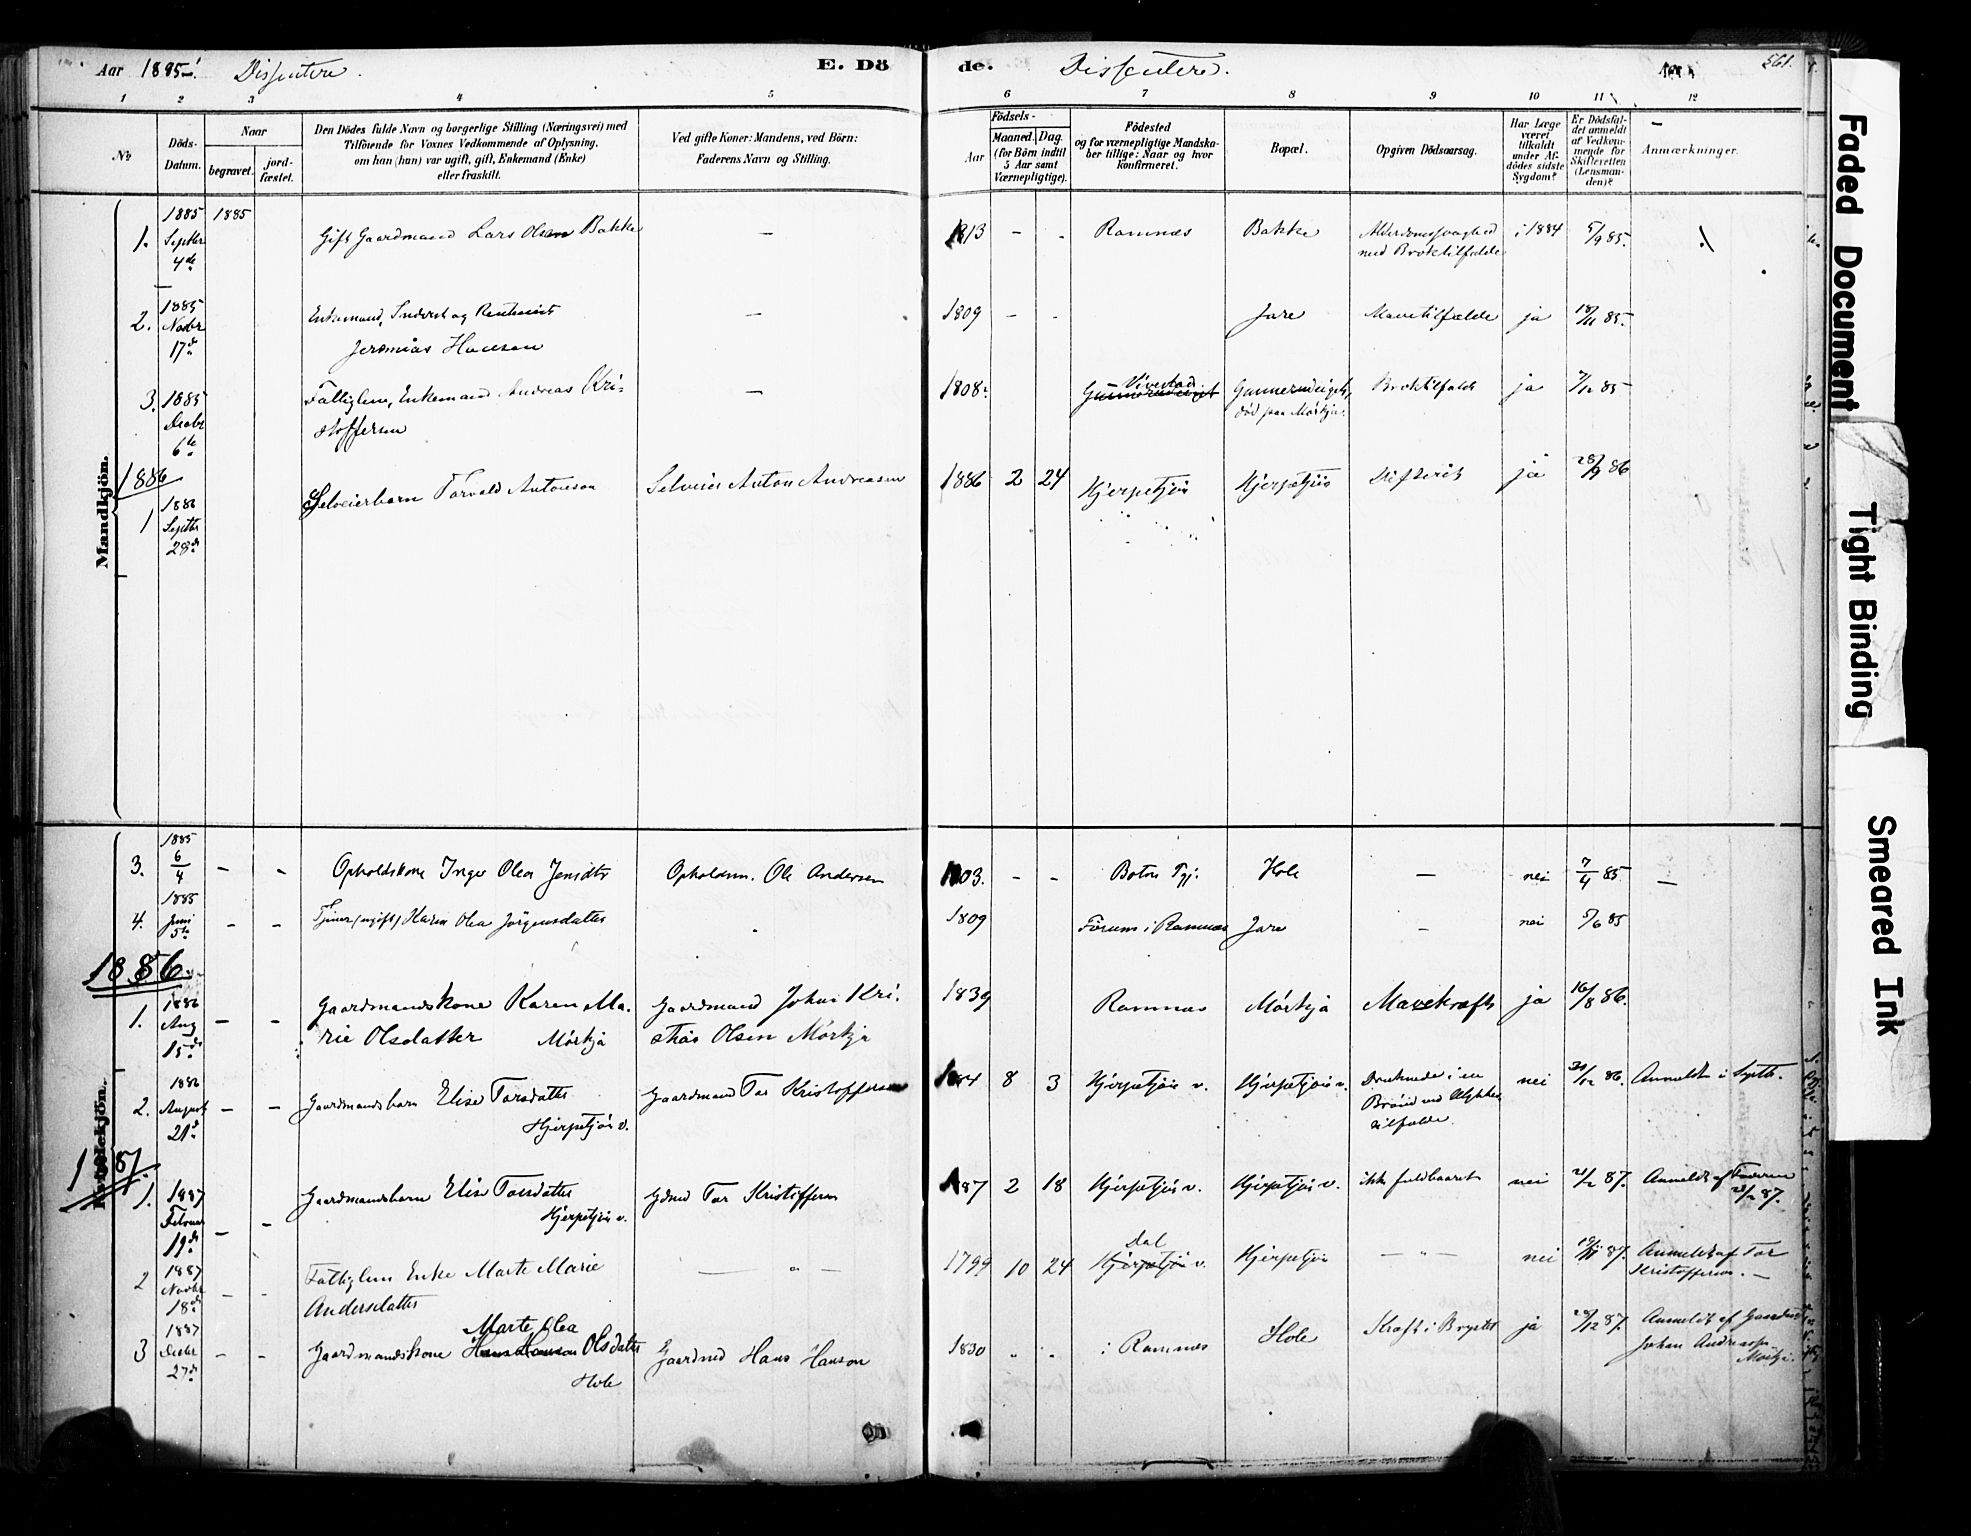 Aar 1885 Dissentere. E. Döde. Dissentere. 561.
1 2 3 4 5 6 7 8 9 10 11 12
No.
Döds-
Datum.
Naar
begravet.
jord-
fæstet.
Den Dödes fulde Navn og borgerlige Stilling (Næringsvei) med
Tilföiende for Voxnes Vedkommende af Oplysning,
om han (hun) var ugift, gift, Enkemand (Enke)
eller fraskilt.
Ved gifte Koner: Mandens, ved Börn:
Faderens Navn og Stilling.
Födsels-
Aar
Maaned.
Dag.
(for Börn indtil
5 Aar samt
Værnepligtige).
Födested
og for værnepligtige Mandska-
ber tillige: Naar og hvor
konfirmeret.
Bopæl.
Opgiven Dödsaarsag.
Har Læge
været
tilkaldt
under Af-
dödes sidste
Sygdom?
Er Dödsfal-
det anmeldt
af Vedkom-
mende for
Skifteretten
(Lensman-
den)?
Anmærkninger.
Mandkjön.
1. 1885 Septbr 4de 1885 Gift Gaardmand Lars Olsen Bakke — 1813 - - Ramnæs Bakke Alderdomssvaghed
med Broktilfælde i 1884 5/9 85.
2. 1885 Novbr 17de Enkemand, Inderst og
Jeremias Hansen — 1809 - - Jare Mavetilfælde ja 18/11 85.
3. 1885 Decbr 6te Fattiglem, Enkemand Andreas Kri-
stoffersen — 1808. Vivestad Gunnersveiget,
död paa Mörkja. Broktilfælde ja 7/12 85
1886
1 1886 Septbr 28de Selveierbarn Torvald Antonson Selveier Anton Andreasen 1886 2 24 Kjerpetjön Kjerpetjön Difterit ja 28/9 86
Kvindekjön.
3. 1885 6/4 - - Opholdskone Inger Olea Jensdtr Opholdsm. Ole Andersen 1803. - - Botne Pgj. Hole — nei 7/4 85 —
4. 1885 Juni 5te - - Tjener (ugift) Karen Olea Jörgensdatter 1809 i Ramnæs Jare - nei 5/6 85
1886
1. 1886 Aug 15de - - Gaardmandskone Karen Ma-
rie Olsdatter Mörkja Gaardmand Johan Kri-
stian Olsen Mörkja 1839 Ramnæs Mörkja Mavekræft ja 16/8 86.
2. 1886 August 21de - - Gaardmandsbarn Elise Torsdatter
Kjerpetjön v. Gaardmand Tor Kristoffersen 1884 8 3 Kjerpetjön v. Kjerpetjön v. Druknede i en
Brönd ved Ulykkes
tilfælde. nei 31/12 86. Anmeldt i Septb.
1887.
1. 1887 Februar 19de - - Gaardmandsbarn Elise Torsdatter
Kjerpetjön v. Gdmd Tor Kristoffersen 1887 2 18 Kjerpetjön v. Kjerpetjön v. ikke fuldbaaret nei 21/2 87. Anmeldt af Faderen
21/2 87.
2 1887 Novbr 18de - - Fattiglem Enke Marte Marie
Andersdatter — " — 1799 10 24 Dal
Kjerpetjön v. Kjerpetjön — " — nei 19/11 87. Anmeldt af Tor
Kristoffersen. —
3 1887 Decbr 27de - - Marte Olea
Gaardmandskone Hans Hanson Olsdatter
Hole Gaardmd Hans Hanson 1830 " " i Ramnæs Hole Kræft i Brystet ja 28/12 87. Anmeldt af Gaardmd
Johan Andreas
Mörkja.
Faded Document
Tight Binding
Smeared Ink